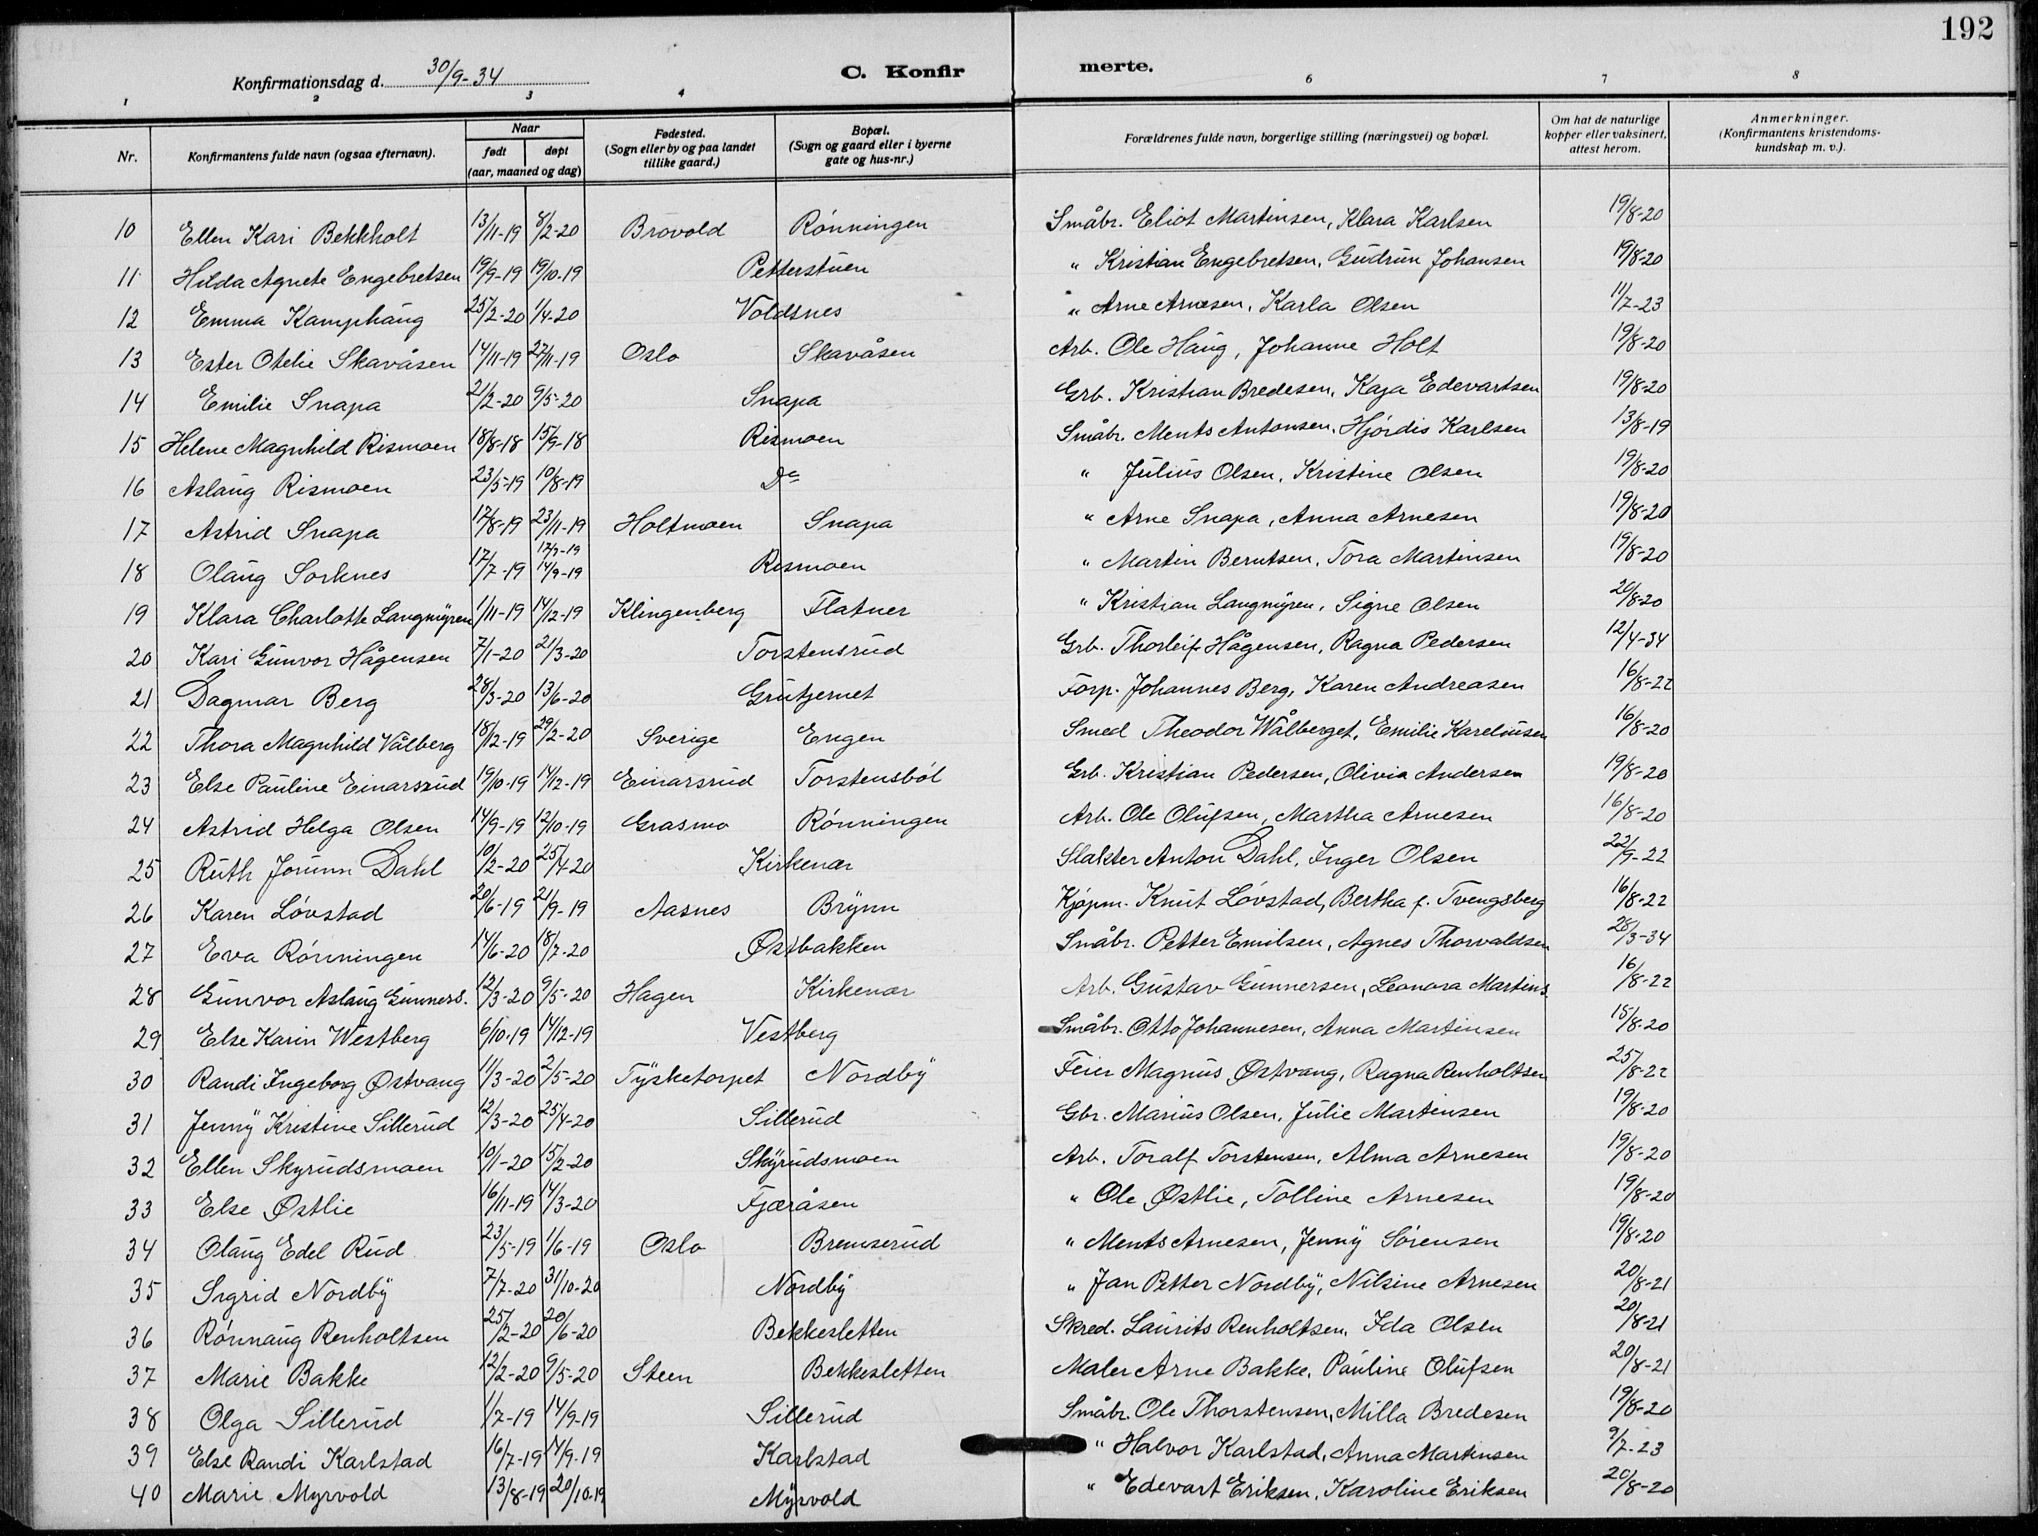 192
Konfirmationsdag d. 30/9-34 C. Konfirmerte.
1 2 3 4 6 7 8
Nr. Konfirmantens fulde navn (ogsaa efternavn). Naar født døpt (aar, maaned og dag) Fødested. (Sogn eller by og paa landet tillike gaard.) Bopæl. (Sogn og gaard eller i byerne gate og hus-nr.) Forældrenes fulde navn, borgerlige stilling (næringsvei) og bopæl. Om hat de naturlige kopper eller vaksinert, attest herom. Anmerkninger. (Konfirmantens kristendomskundskap m. v.).
10 Ellen Kari Bekkholt 13/11-19 8/2-20 Brovold Rönningen Småbr. Eliot Martinsen, Klara Karlsen 19/8-20
11 Hilda Agnete Engebretsen 19/9-19 19/10-19 Petterstuen " Kristian Engebretsen, Gudrun Johansen 19/8-20
12 Emma Kamphaug 25/2-20 1/4-20 Voldsnes " Arne Arnesen, Karla Olsen 11/7-23
13 Ester Otelie Skavåsen 14/11-19 27/11-19 Oslo Skavåsen Arb. Ole Haug, Johanne Holt 19/8-20
14 Emilie Snapa 2/2-20 9/5-20 Snapa Grb. Kristian Bredesen, Kaja Edevartsen 19/8-20
15 Helene Magnhild Rismoen 18/8-18 15/9-18 Rismoen Småbr. Ments Antonsen, Hjördis Karlsen 13/8-19
16 Aslaug Rismoen 23/5-19 10/8-19 Do " Julius Olsen, Kristine Olsen 19/8-20
17 Astrid Snapa 17/8-19 23/11-19 Holtmoen Snapa " Arne Snapa, Anna Arnesen 19/8-20
18 Olaug Sorknes 17/7-19 17/7-19 14/9-19 Rismoen " Martin Berntsen, Tora Martinsen 19/8-20
19 Klara Charlotte Langmyren 1/11-19 14/12-19 Klingenberg Flatner " Kristian Langmyren, Signe Olsen 20/8-20
20 Kari Gunvor Hågensen 7/1-20 21/3-20 Torstensrud Grb. Thorleif Hågensen, Ragna Pedersen 12/4-34
21 Dagmar Berg 28/3-20 13/6-20 Grutjernet Forp. Johannes Berg, Karen Andreasen 16/8-22
22 Thora Magnhild Vålberg 18/12-19 29/2-20 Sverige Engen Smed Theodor Wålberget, Emilie Kareliusen 16/8-20
23 Else Pauline Einarsrud 19/10-19 14/12-19 Einarsrud Torstensböl Grb. Kristian Pedersen, Olivia Andersen 19/8-20
24 Astrid Helga Olsen 14/9-19 12/10-19 Grasmo Rönningen Arb. Ole Olufsen, Martha Arnesen 16/8-20
25 Ruth Jorunn Dahl 10/2-20 25/4-20 Kirkenær Slakter Anton Dahl, Inger Olsen 22/9-22
26 Karen Lövstad 20/6-19 21/9-19 Aasnes Brynn Kjøpm. Knut Lövstad, Bertha f. Tvengsberg 16/8-22
27 Eva Rönningen 14/6-20 18/7-20 Østbakken Småbr. Petter Emilsen, Agnes Thorvaldsen 28/3-34
28 Gunvor Aslaug Gunners. 12/3-20 9/5-20 Hagen Kirkenær Arb. Gustav Gunnersen, Leonora Martins. 16/8-22
29 Else Karin Westberg 6/10-19 14/12-19 Vestberg Småbr. Otto Johannesen, Anna Martinsen 15/8-20
30 Randi Ingeborg Østvang 11/3-20 2/5-20 Tysketorpet Nordby Feier Magnus Østvang, Ragna Renholtsen 25/8-22
31 Jenny Kristine Sillerud 12/3-20 25/4-20 Sillerud Gbr. Marius Olsen, Julie Martinsen 19/8-20
32 Ellen Skyrudsmoen 10/1-20 15/2-20 Skyrudsmoen Arb. Toralf Torstensen, Alma Arnesen 19/8-20
33 Else Østlie 16/11-19 14/3-20 Fjæråsen " Ole Østlie, Tolline Arnesen 19/8-20
34 Olaug Edel Rud 23/5-19 1/6-19 Oslo Bremserud " Ments Arnesen, Jenny Sörensen 19/8-20
35 Sigrid Nordby 7/7-20 31/10-20 Nordby " Jan Petter Nordby, Nilsine Arnesen 20/8-21
36 Rönnaug Renholtsen 25/2-20 20/6-20 Bekkesletten Skred. Laurits Renholtsen, Ida Olsen 20/8-21
37 Marie Bakke 12/2-20 9/5-20 Steen Bekkesletten Maler Arne Bakke, Pauline Olufsen 20/8-21
38 Olga Sillerud 1/7-19 14/9-19 Sillerud Småbr. Ole Thorstensen, Milla Bredesen 19/8-20
39 Else Randi Karlstad 16/7-19 14/9-19 Karlstad " Halvor Karlstad, Anna Martinsen 9/7-23
40 Marie Myrvold 13/8-19 20/10-19 Myrvold " Edevart Eriksen, Karoline Eriksen 20/8-20